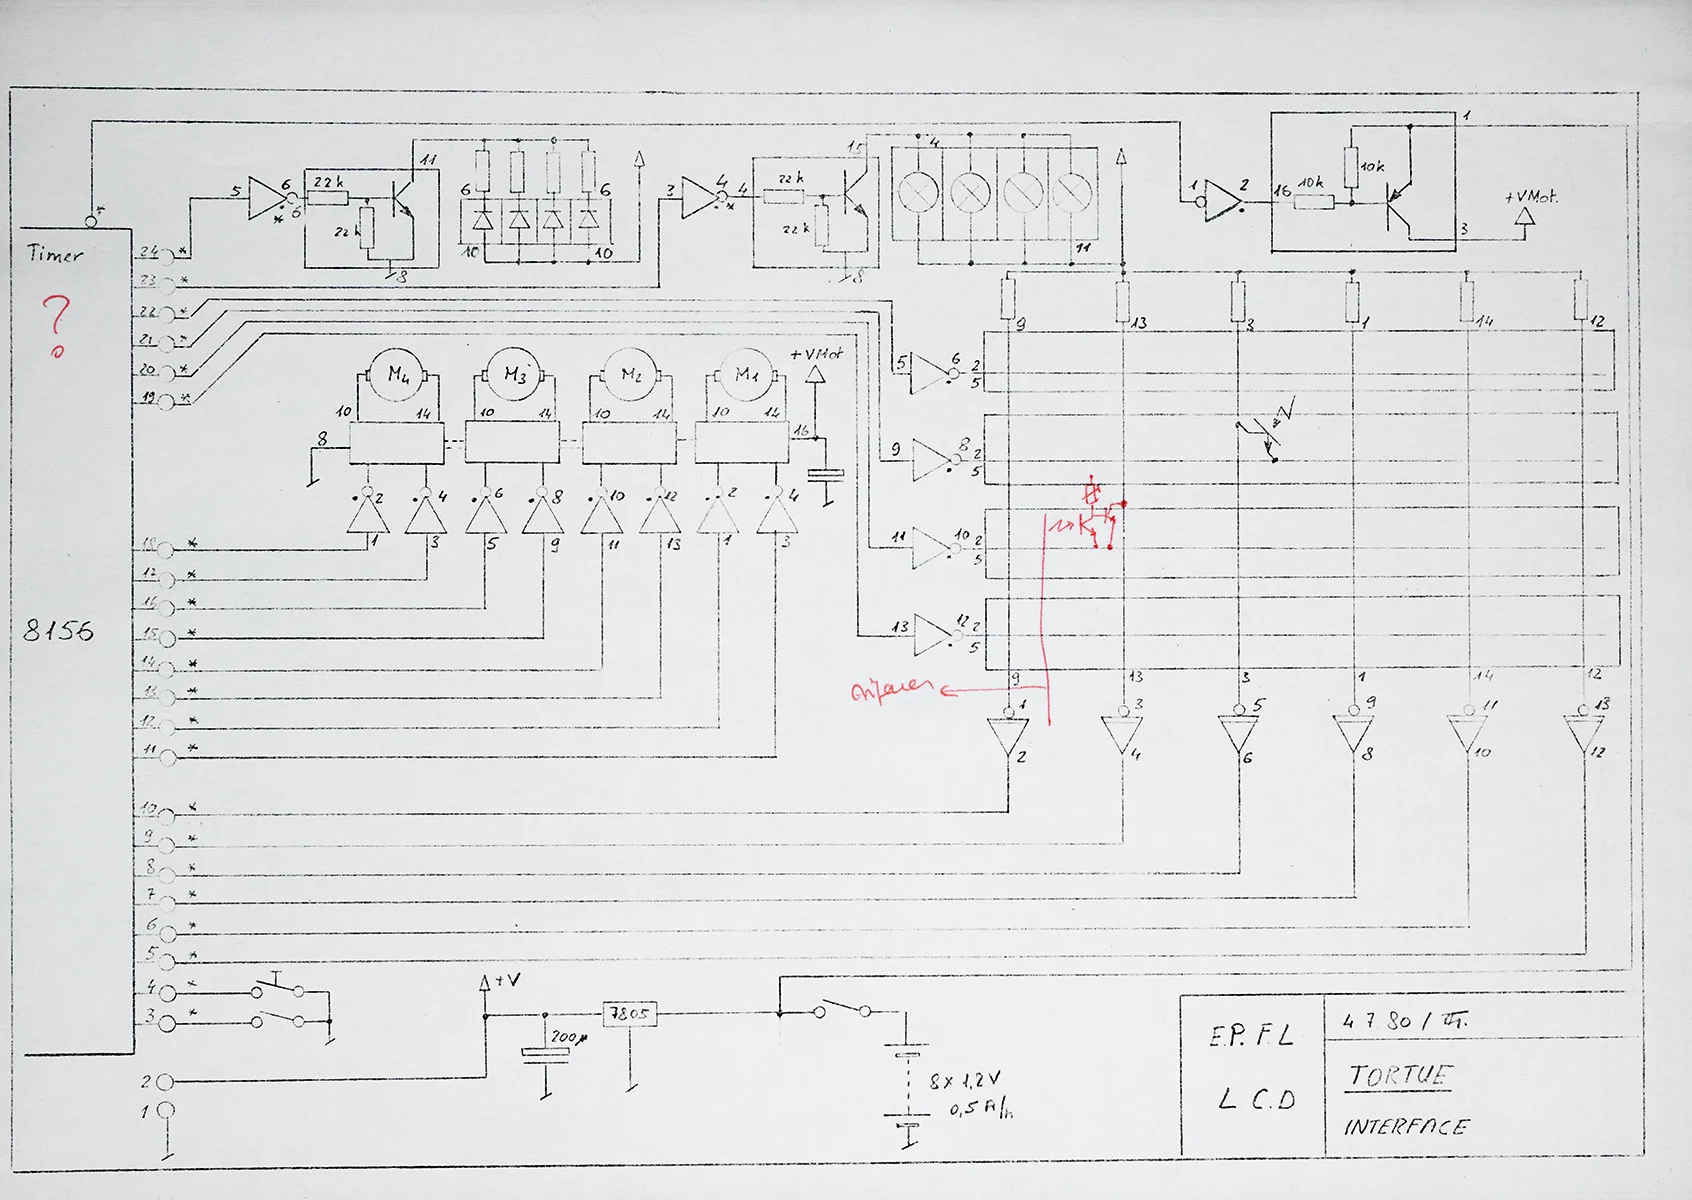 Timer
?
8156
24 *
23 *
22 *
21 *
20 *
19 *
18 *
17 *
16 *
15 *
14 *
13 *
12 *
11 *
10 *
9 *
8 *
7 *
6 *
5 *
4 *
3 *
2
1
5 6 * 6 22k 22k 11 8
6 6 10 10
3 4 * 4 22k 22k 15 8
4 11
1 2 16 10k 10k 1 3
+VMot.
M4 M3 M2 M1 +VMot
10 14 10 14 10 14 10 14
8 16
2 4 6 8 10 12 2 4
1 3 5 9 11 13 1 3
9 13 3 1 14 12
5 6 2 5
9 8 2 5
11 10 2 5
13 12 2 5
9 13 3 1 14 12
1 3 5 9 11 13
2 4 6 8 10 12
+V
200µ
7805
8x1,2V
0,5A/h
E.P.F.L
L.C.D
4 7 80 / III.
TORTUE
INTERFACE